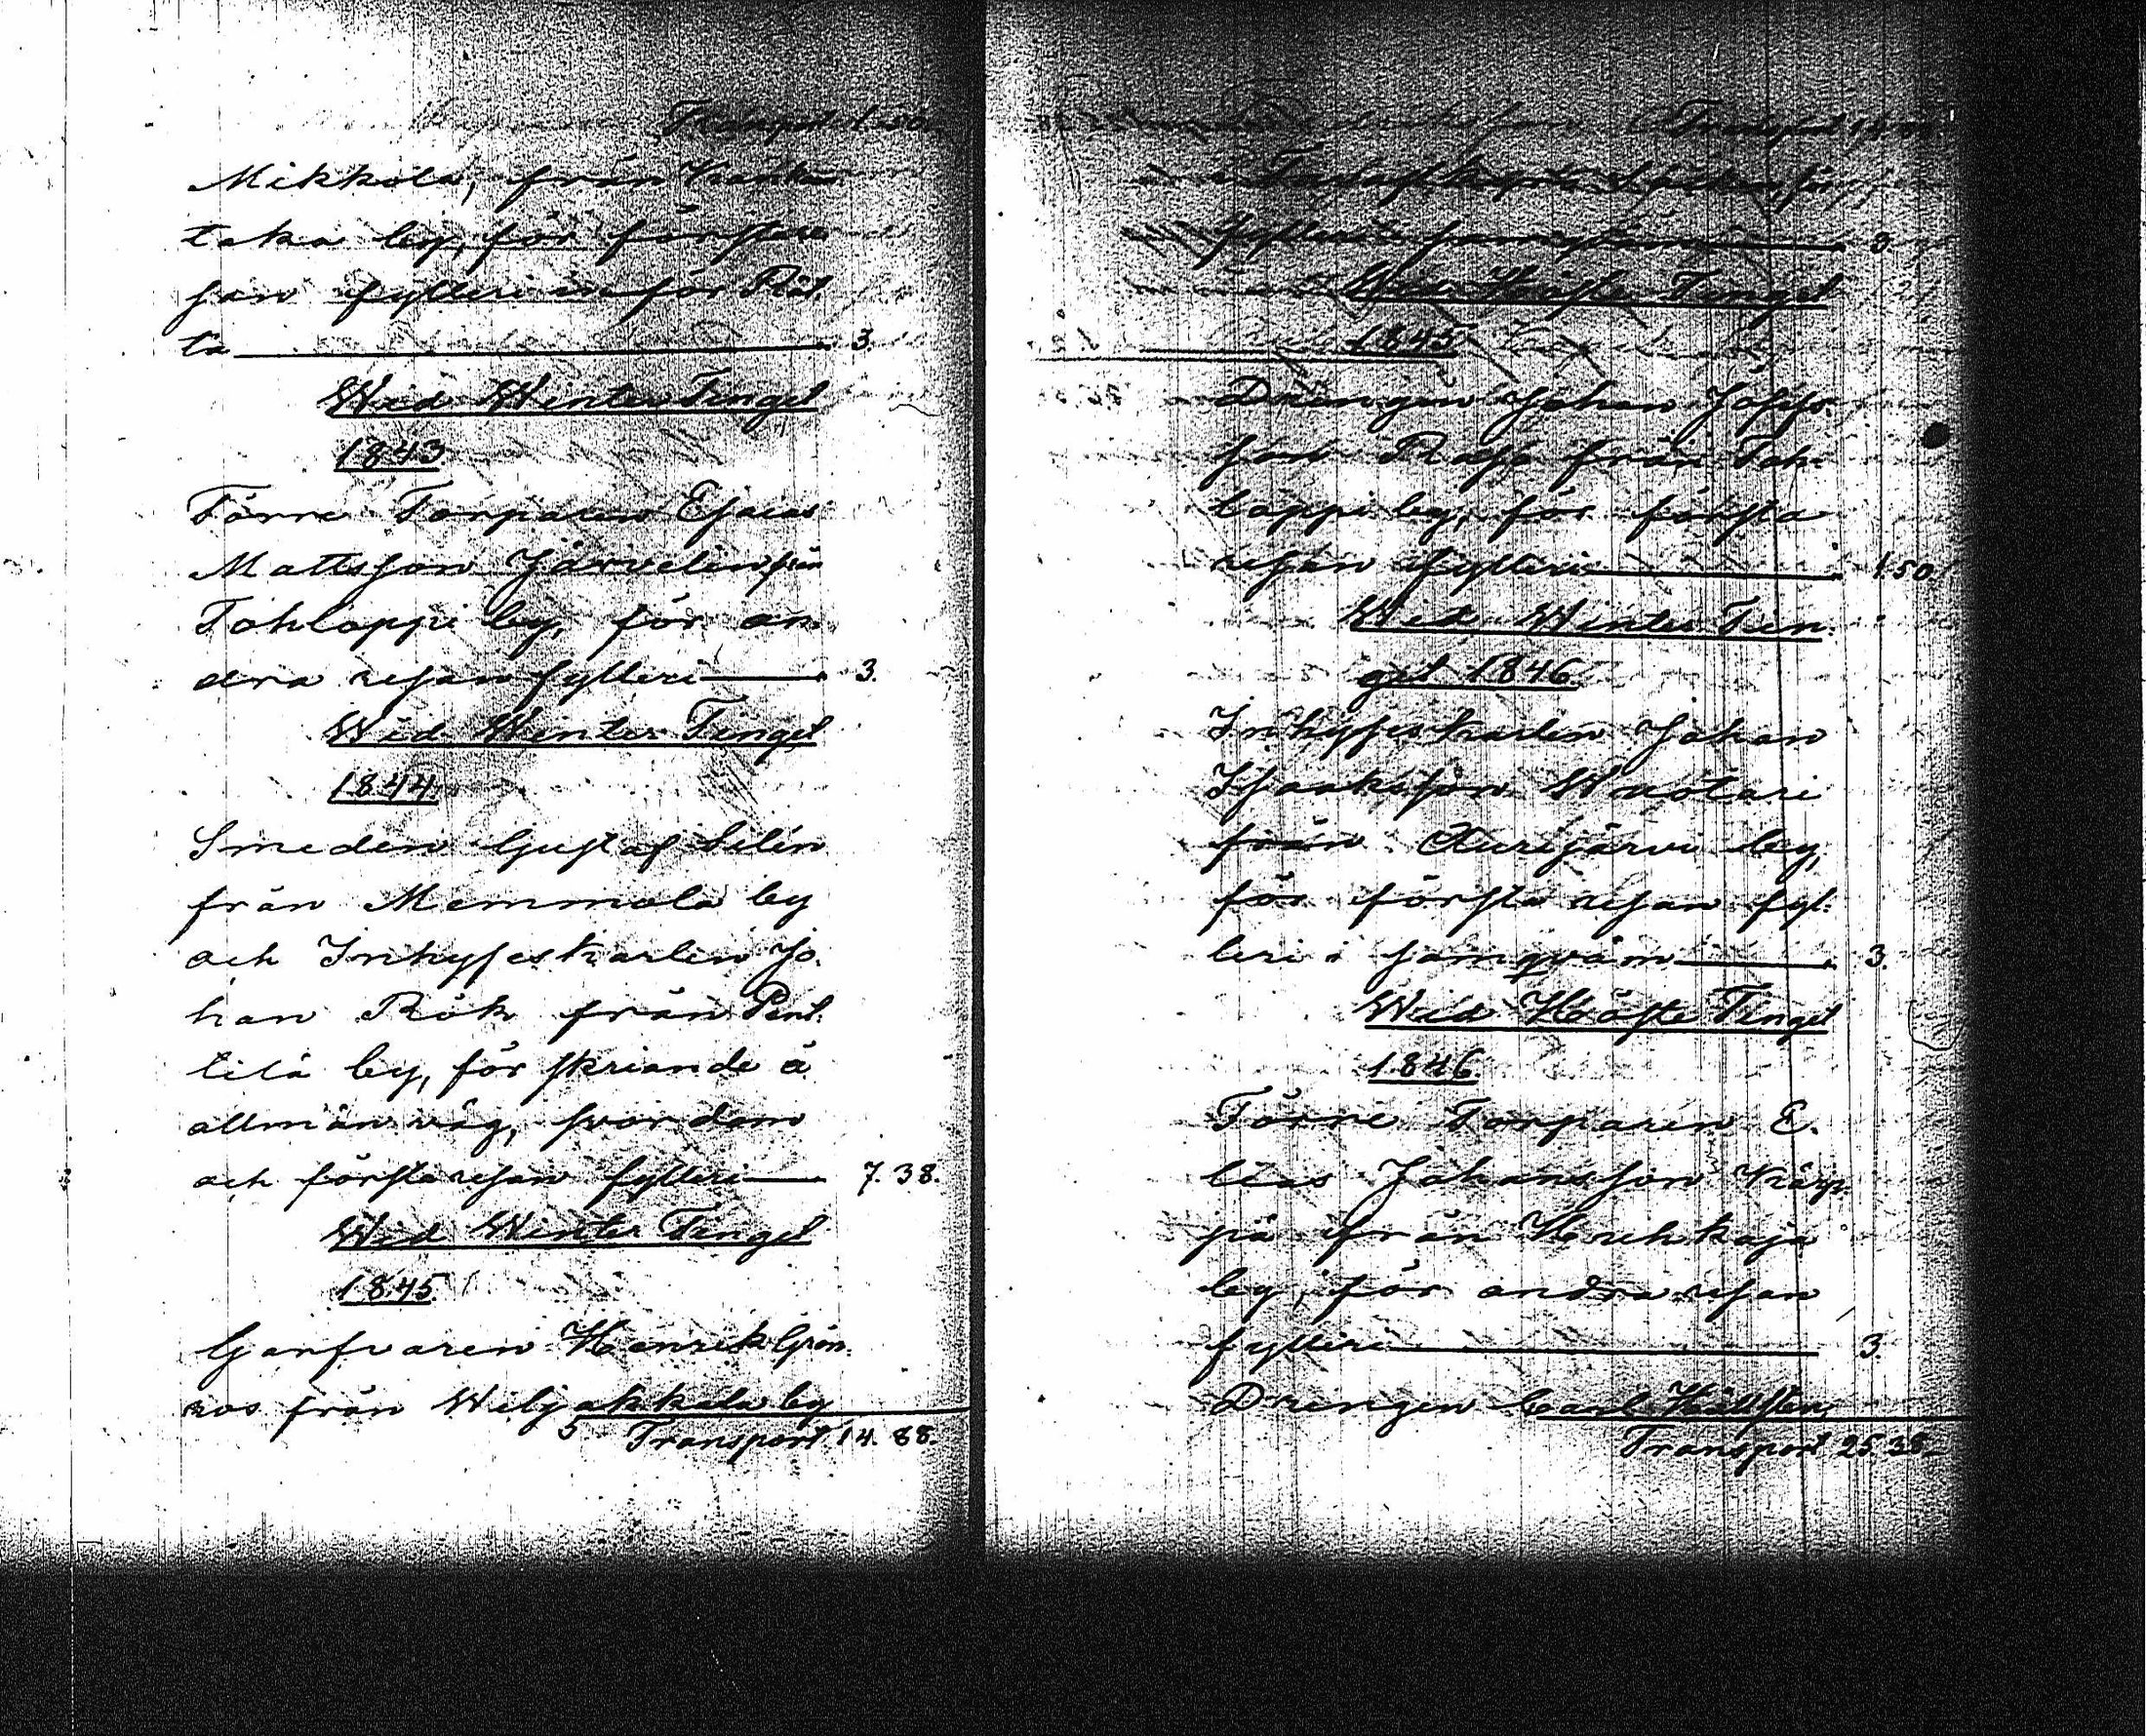 Transport 1.50.
Mikkola, från
taka by, för första
resan fylleri inför Rät,
ta 3.
Wid Winter Tinget
1843
Förre Torparen Esaias
Mattsson Järvelin från
Tohloppi by, för an-
dra resan fylleri 3.
Wid Winter Tinget
1844.
Smeden Gustaf Selin
från Memmola by
och Inhyseskarlen Jo-
han Rök från Pent-
tilä by, för skriande å
allmän väg, svordom
och första resan fylleri 7. 38.
Wid Winter Tinget
1845
Garfvaren Henrik Grön-
roos från Wiljakkala by
Transport 14. 88.
Transport
för
fylleri 3.
Wid Höste Tinget
1845
Drengen Johan Josefs-
son från Toh-
loppi by, för första
resan fylleri 1.50.
Wid Winter Tin-
get 1846.
Inhyseskarlen Johan
Isaaksson Wuotari
från Aurejärvi by,
för första resan fyl-
leri i samqväm 3.
Wid Höste Tinget
1846.
Förre Torparen E-
lias Johansson Kärp-
pä från Kuhkaja
by, för andra resan
fylleri 3.
Drengen Carl Hällsten,
Transport 25.38.